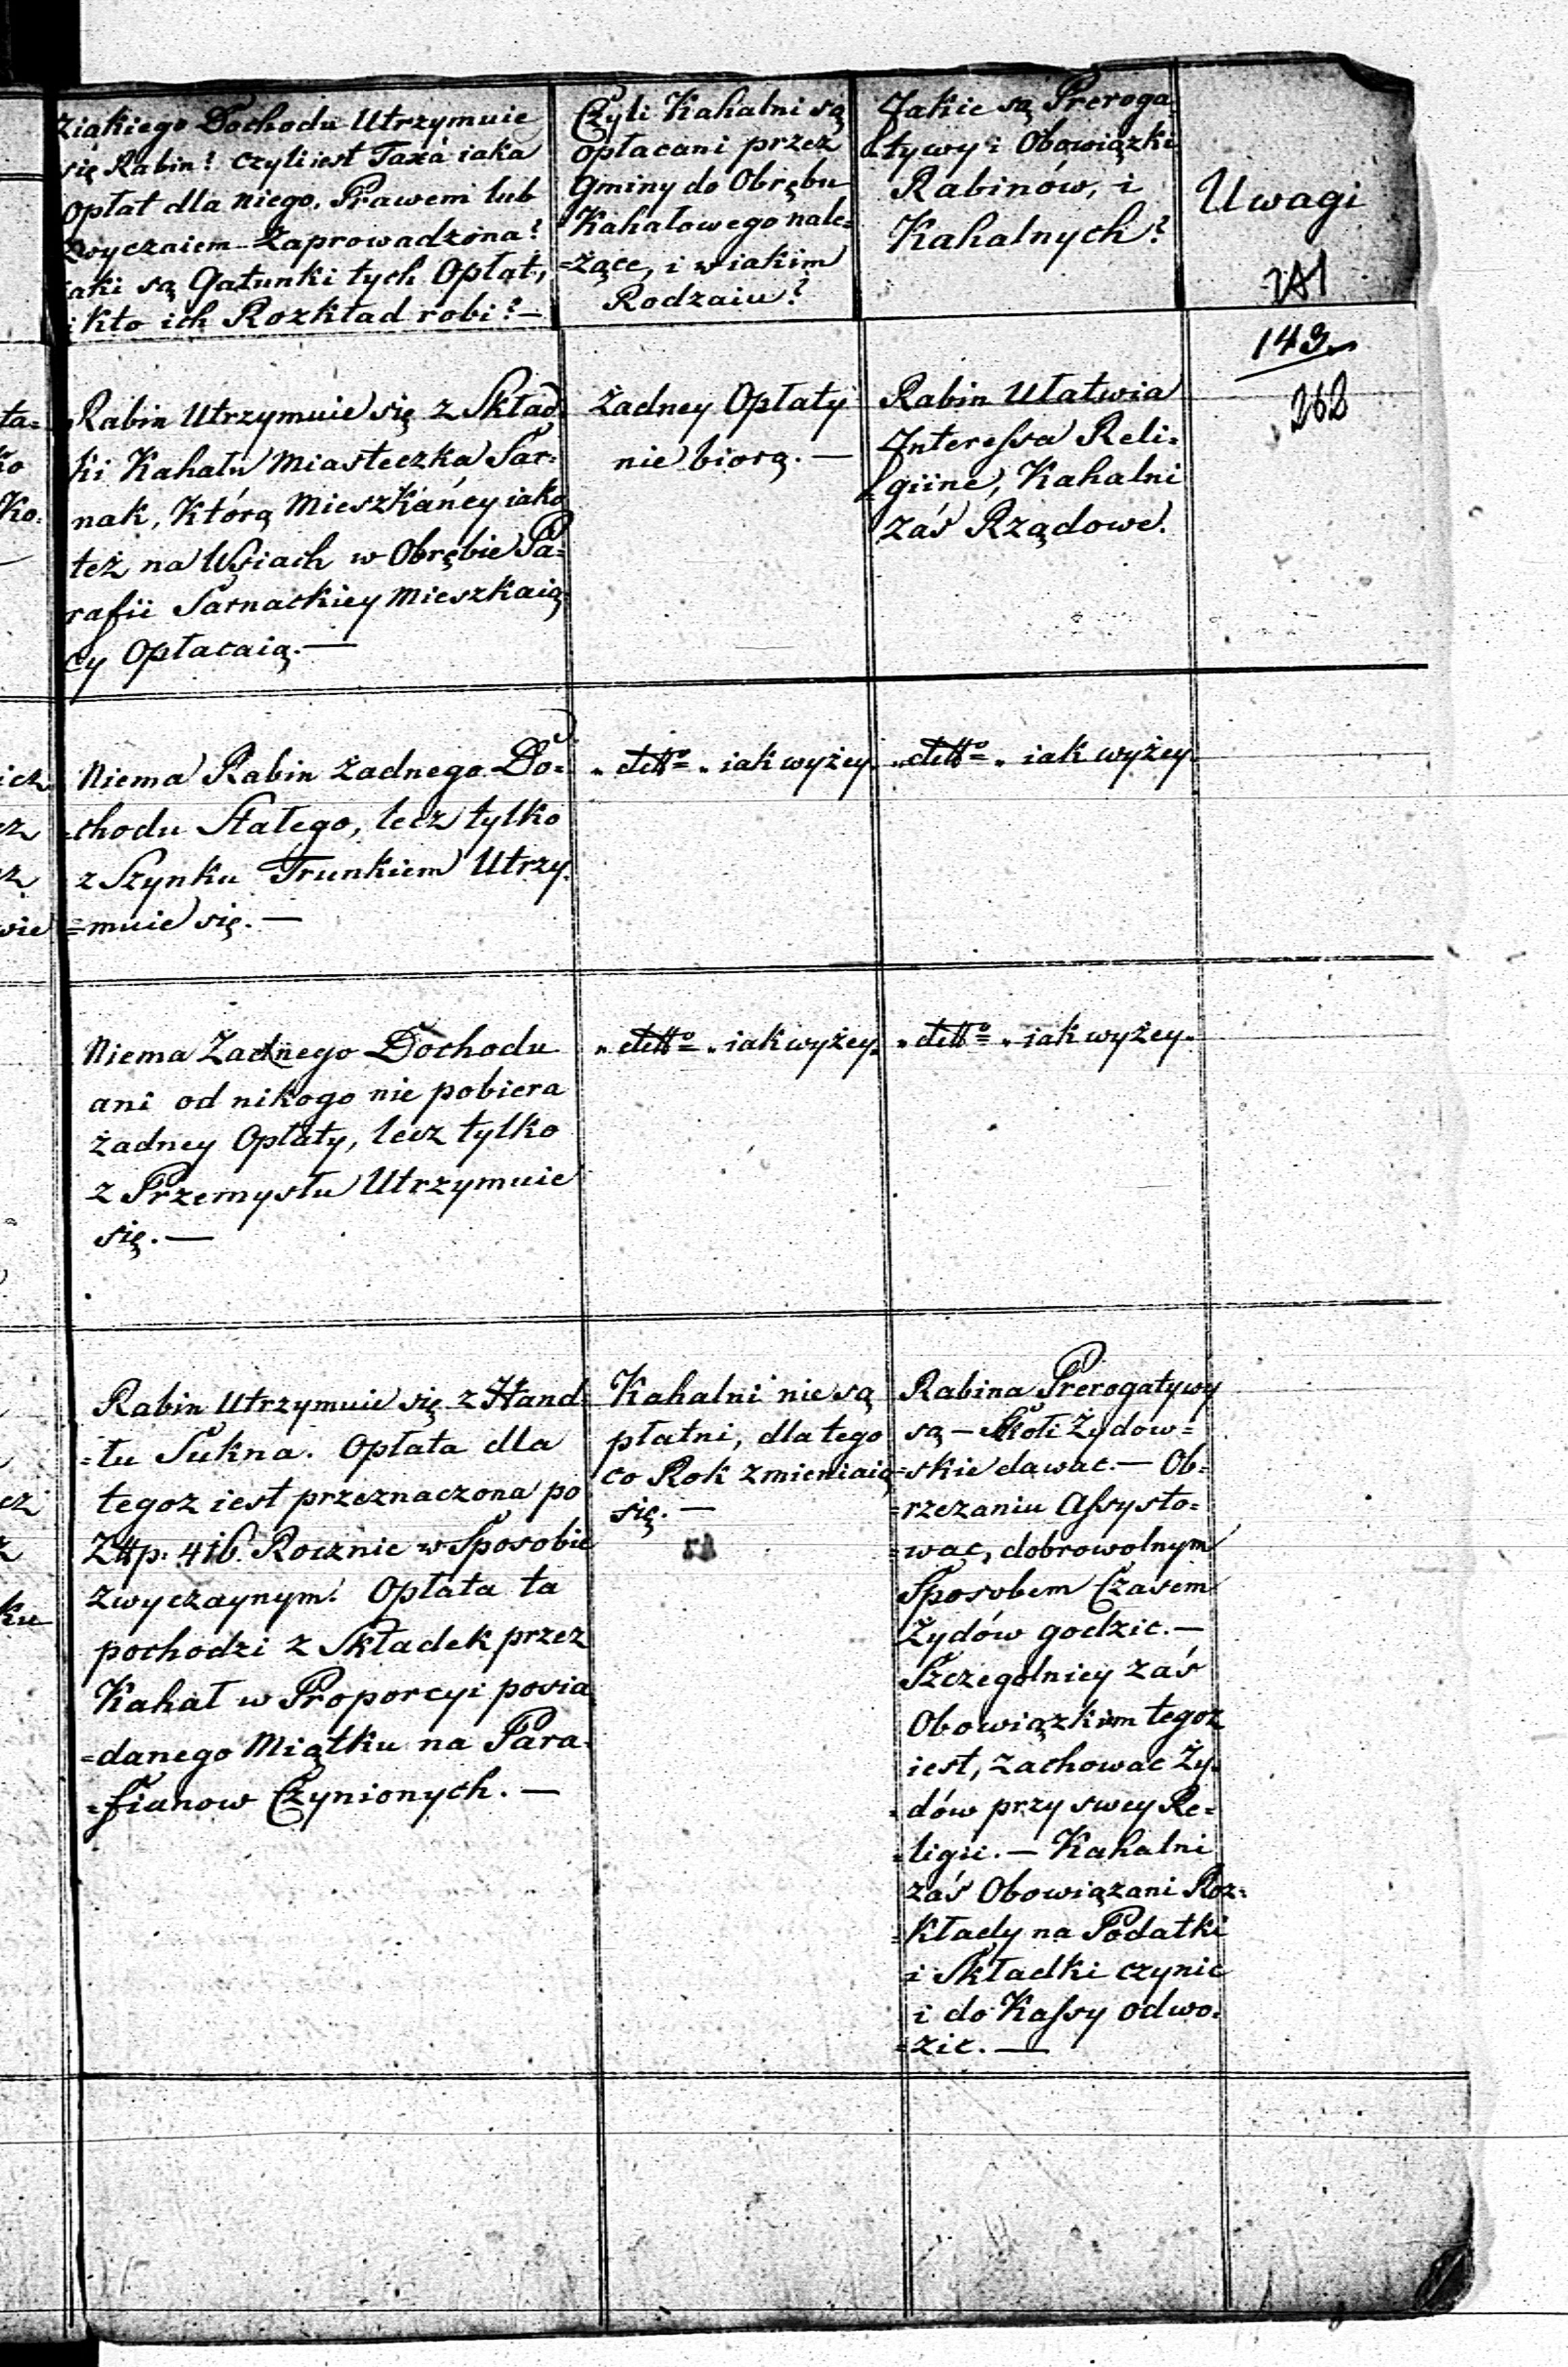 Ziakiego Dochodu Utrzymuie
się Rabin? czyli iest Taxa iaka
Opłat dla niego, Prawem lub
Zwyczaiem Zaprowadzona?
iaki są Gatunki tych Opłat,
i kto ich Rozkład robi?—
Czyli Kahalni są
opłacani przez
Gminy do Obrębu
Kahałowego nale=
=żące, i w iakim
Rodzaiu?
Jakie są Preroga
tywy i Obowiązki
Rabinów, i
Kahalnych?
Uwagi
143
262
Rabin Utrzymuie się z Skład
ki Kahału Miasteczka Sar=
nak, którą Mieszkańcy iako
też na Wsiach w Obrębie Pa=
rafii Sarnackiey Mieszkaią
cy Opłacaią.—
Żadney Opłaty
nie biorą.—
Rabin Ułatwia
Interessa Reli=
giine, Kahalni
zaś Rządowe.
Niema Rabin żadnego Do=
=chodu Stałego, lecz tylko
z Szynku Trunkiem Utrzy=
=muie się.—
„ detto „ iak wyżey.
„ detto „ iak wyżey.
Niema Żadnego Dochodu
ani od nikogo nie pobiera
żadney Opłaty, lecz tylko
z Przemysłu Utrzymuie
się.—
„ detto „ iak wyżey.
„ detto „ iak wyżey.
Rabin Utrzymuie się z Hand=
=lu Sukna. Opłata dla
tegoz iest przeznaczona po
Złłp: 416. Rocznie w Sposobie
zwyczaynym. Opłata ta
pochodzi z Składek przez
Kahał w Proporcyi posia
=danego Miątku na Para=
=fianow Czynionych.—
Kahalni nie są
płatni, dla tego
co Rok zmieniaią
się.—
Rabina Prerogatywy
są — Szkoli Żydow=
=skie dawac.— Ob=
=rzezaniu Assysto=
=wac, dobrowolnym
Sposobem Czasem
Żydów godzic.—
Szczegolniey zaś
Obowiązkiem tegoz
iest, zachowac Ży=
=dów przy swey Re=
=ligii.— Kahalni
zaś Obowiązani Roz=
=kłady na Podatki
i Składki czynic
i do Kassy odwo=
=zic.—